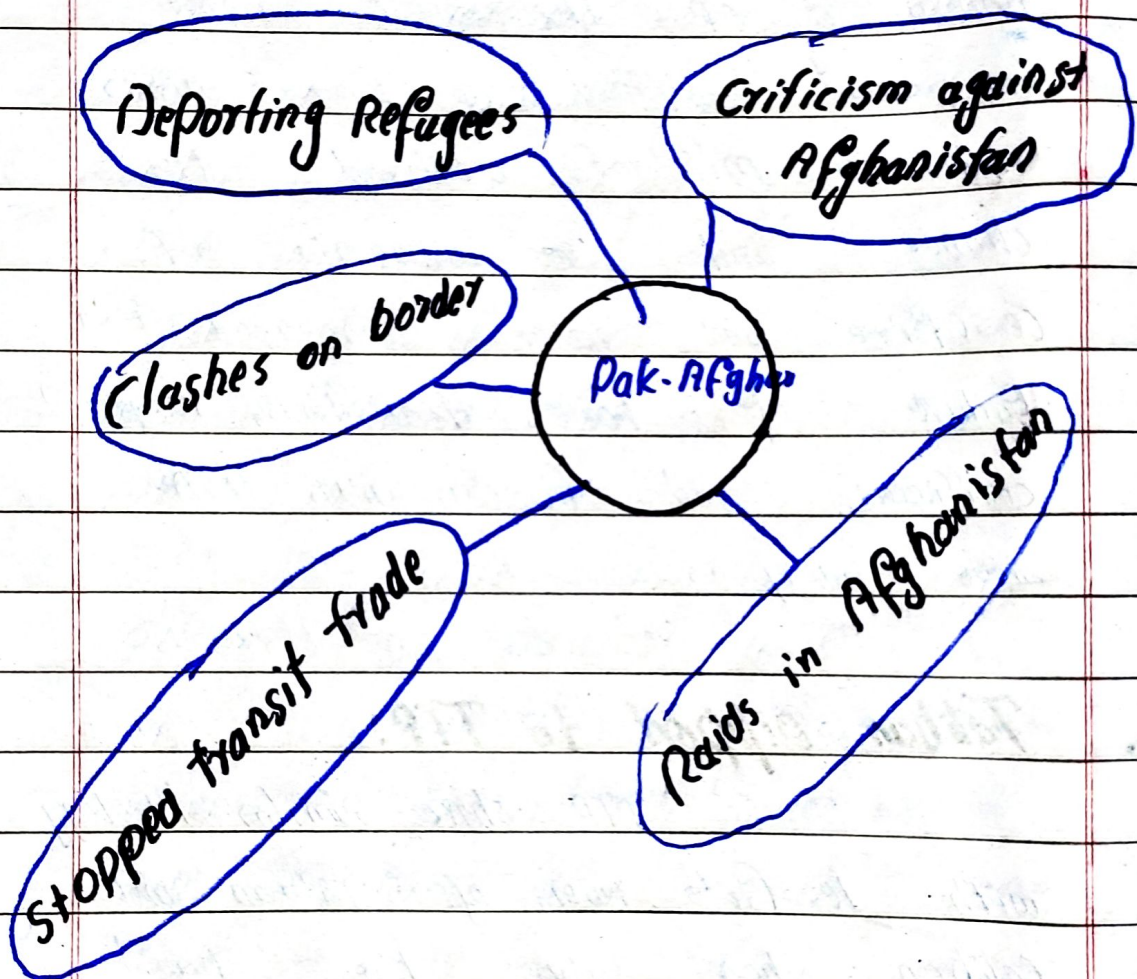 Deporting Refugees
Criticism against
Afghanistan
Clashes on border
Pak-Afghan
Stopped transit trade
Raids in Afghanistan